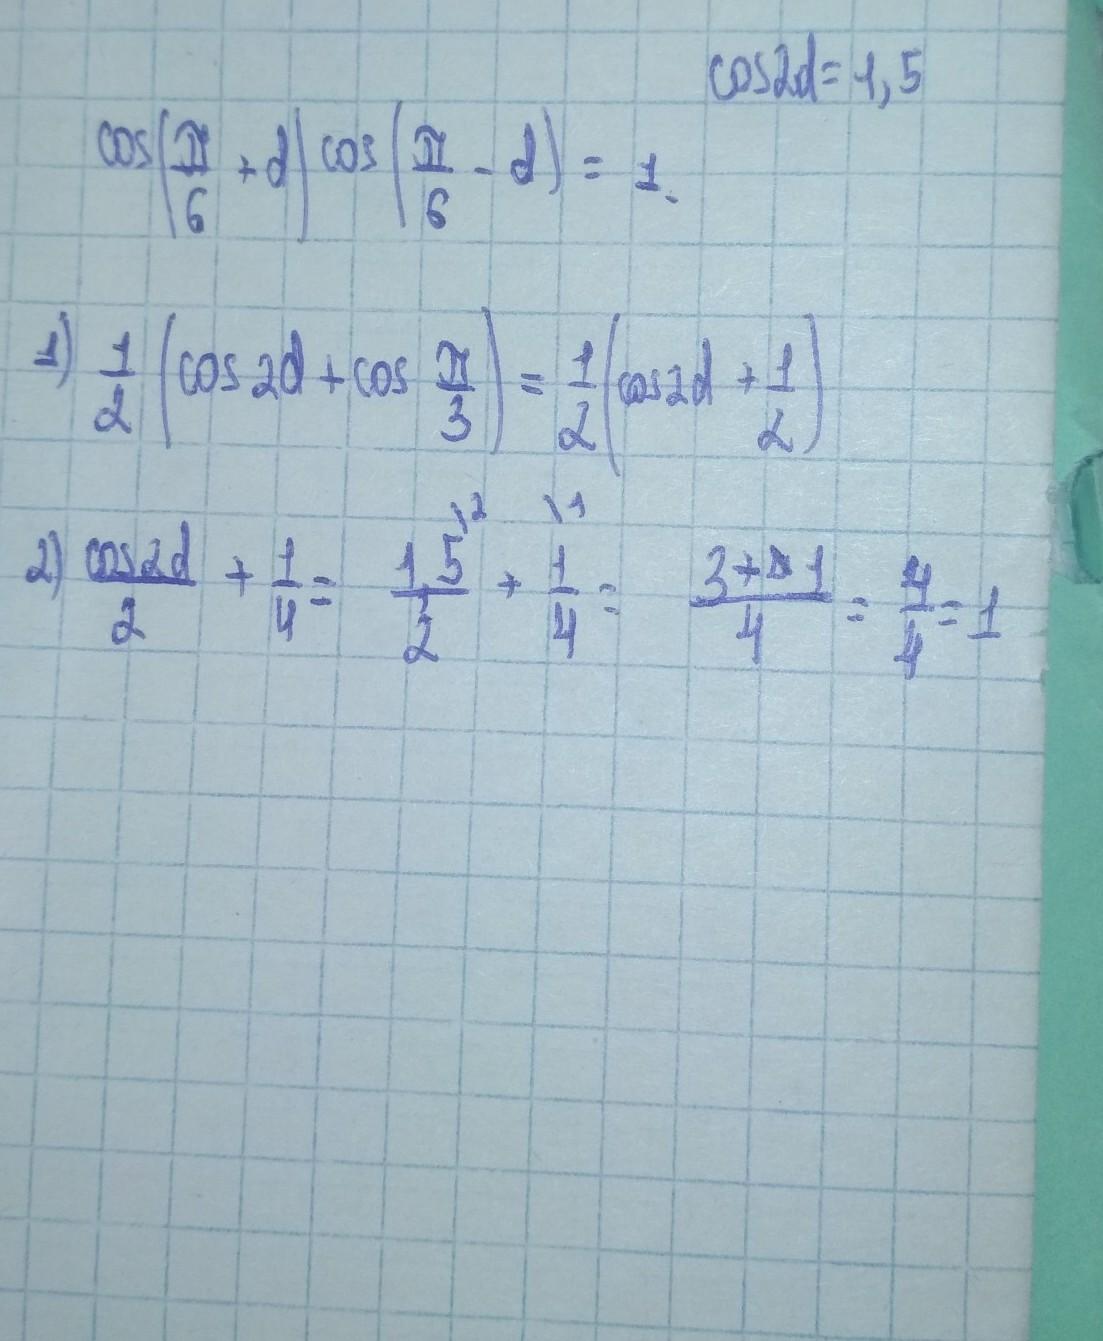 cos2d=1,5
cos(π/6 + d) cos(π/6 - d) = 1.
1) 1/2 (cos2d + cos π/3) = 1/2 (cos2d + 1/2)
2) cos2d/2 + 1/4 = 1,5\2/2 + 1\1/4 = 3+1/4 = 4/4 = 1